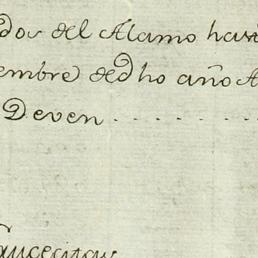 dos del Alamo has
embre de dho año A
Deven . . . . . . . .